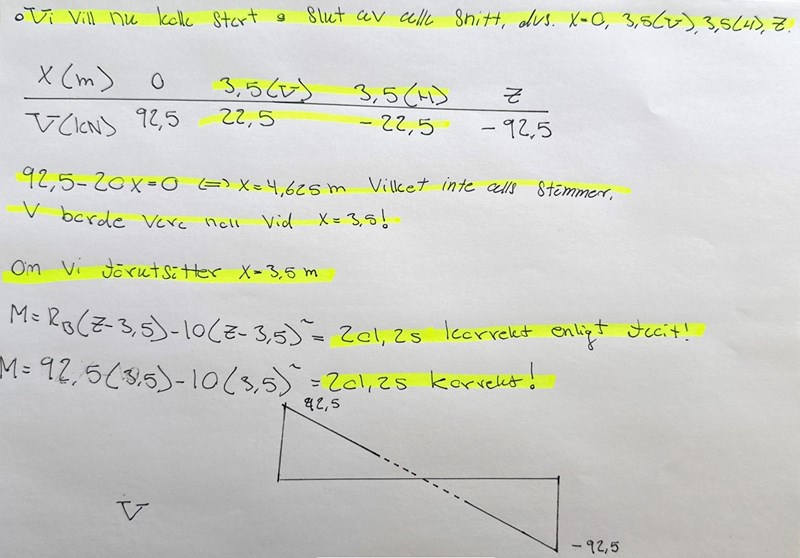 • Vi vill nu kolla start o slut av alla snitt, dvs. x=0, 3,5(V), 3,5(H), 7.
X(m) 0 3,5(V) 3,5(H) 7
V(kN) 92,5 22,5 -22,5 -92,5
92,5-20x=0 <=> x=4,625m Vilket inte alls stämmer.
V borde vara noll vid x=3,5!
Om vi förutsätter x=3,5m
M=R_B(7-3,5)-10(7-3,5)²= 201,25 korrekt enligt facit!
M=92,5(3,5)-10(3,5)²=201,25 korrekt!
92,5
V
-92,5